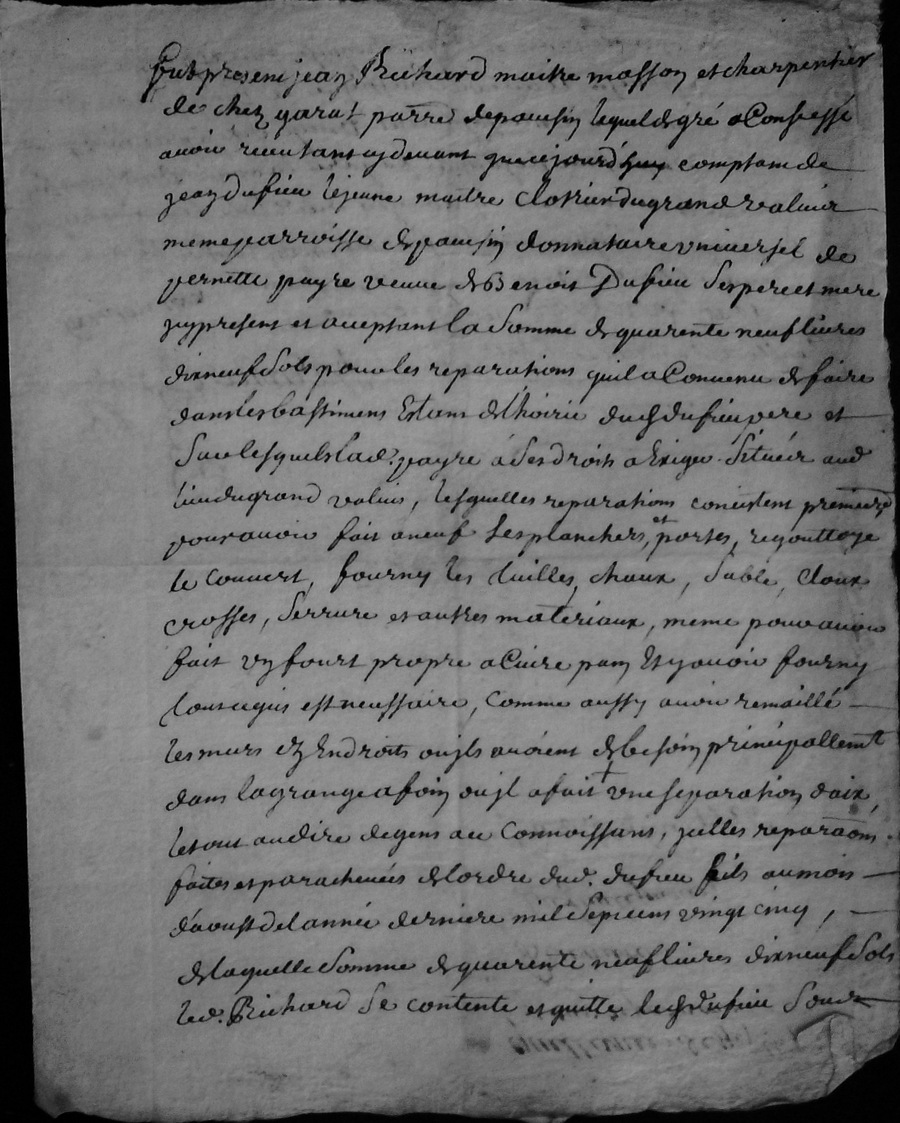 fut present jean Richard maitre masson et charpentier
de chez garat parre depausin lequel de gré a Confessé
avoir receu tant cy devant que cejourd'huy comptant de
jean dufieu le jeune maitre Clotrier du grand valuir
meme parroisse de pausin donnataire universel de
pernette payre veuve de Benoit Dufieu Ses pere et mere
icy present et aceptant la Somme de quarente neuf livres
dixneuf Sols pour les reparations quil a Convenu de faire
dans les bastimens Estans de lhoirie dud dufieu pere et
Sur lesquels lad. payre à Ses droits a Exiger Situés aud
lieu du grand valuir, lesquelles reparations concistent premierem
pour avoir fait a neuf les planchers, et portes, regouttoye
le couvert, fourny les tuilles, chaux, Sable, Cloux
crosses, Serrure et autres materiaux, meme pour avoir
fait un fourt propre a Cuire pain Et y avoir fourny
tout ce quis est necessaire, Comme aussy avoir remaillé
les murs ez Endroits ou ils avoient de besoin principallemt
dans la grange a foin ou il a fait une separation daix,
le tout au dire de gens a ce Connoissans, icelles reparaons
faites et parachevées de lordre dud. dufieu fils au mois
d'aoust de lannée derniere mil Sept cens vingt cinq,
de laquelle Somme de quarente neuf livres dixneuf Sols
led. Richard Se contente et quitte led dufieu Soud